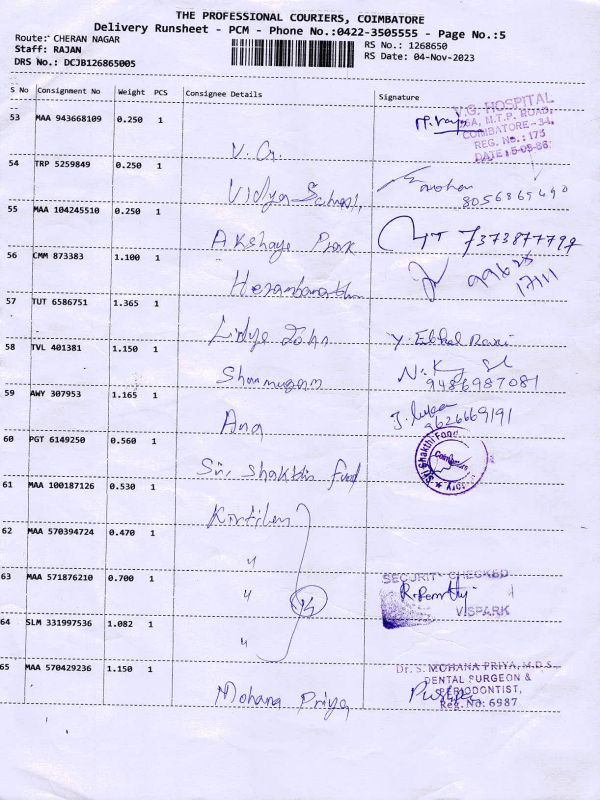 THE PROFESSIONAL COURIERS, COIMBATORE
Delivery Runsheet - PCM - Phone No.:0422-3505555 - Page No.:5
Route: CHERAN NAGAR
RS No.: 1268650
Staff: RAJAN
RS Date: 04-Nov-2023
DRS No.: DCJB126865005
S No Consignment No Weight PCS Consignee Details Signature
53 MAA 943668109 0.250 1
V.G. HOSPITAL
M.T.P. ROAD,
COIMBATORE-34.
REG. No.: 173
V. G.
54 TRP 5259849 0.250 1
Vidya School,
8056869490
55 MAA 104245510 0.250 1
Akshaya
7373877797
56 CMM 873383 1.100 1
99625
17111
57 TUT 6586751 1.365 1
Lidya John
58 TVL 401381 1.150 1
Shanmugam
9486987081
59 AWY 307953 1.165 1
Ana
9626669191
60 PGT 6149250 0.560 1
Sri Shakthi Food
61 MAA 100187126 0.530 1
62 MAA 570394724 0.470 1
"
63 MAA 571876210 0.700 1
"
SECURITY CHECKED
VISPARK
64 SLM 331997536 1.082 1
"
65 MAA 570429236 1.150 1
Dr. S. MOHANA PRIYA, M.D.S.
DENTAL SURGEON &
PERIODONTIST,
Reg. No: 6987
Mohana Priya